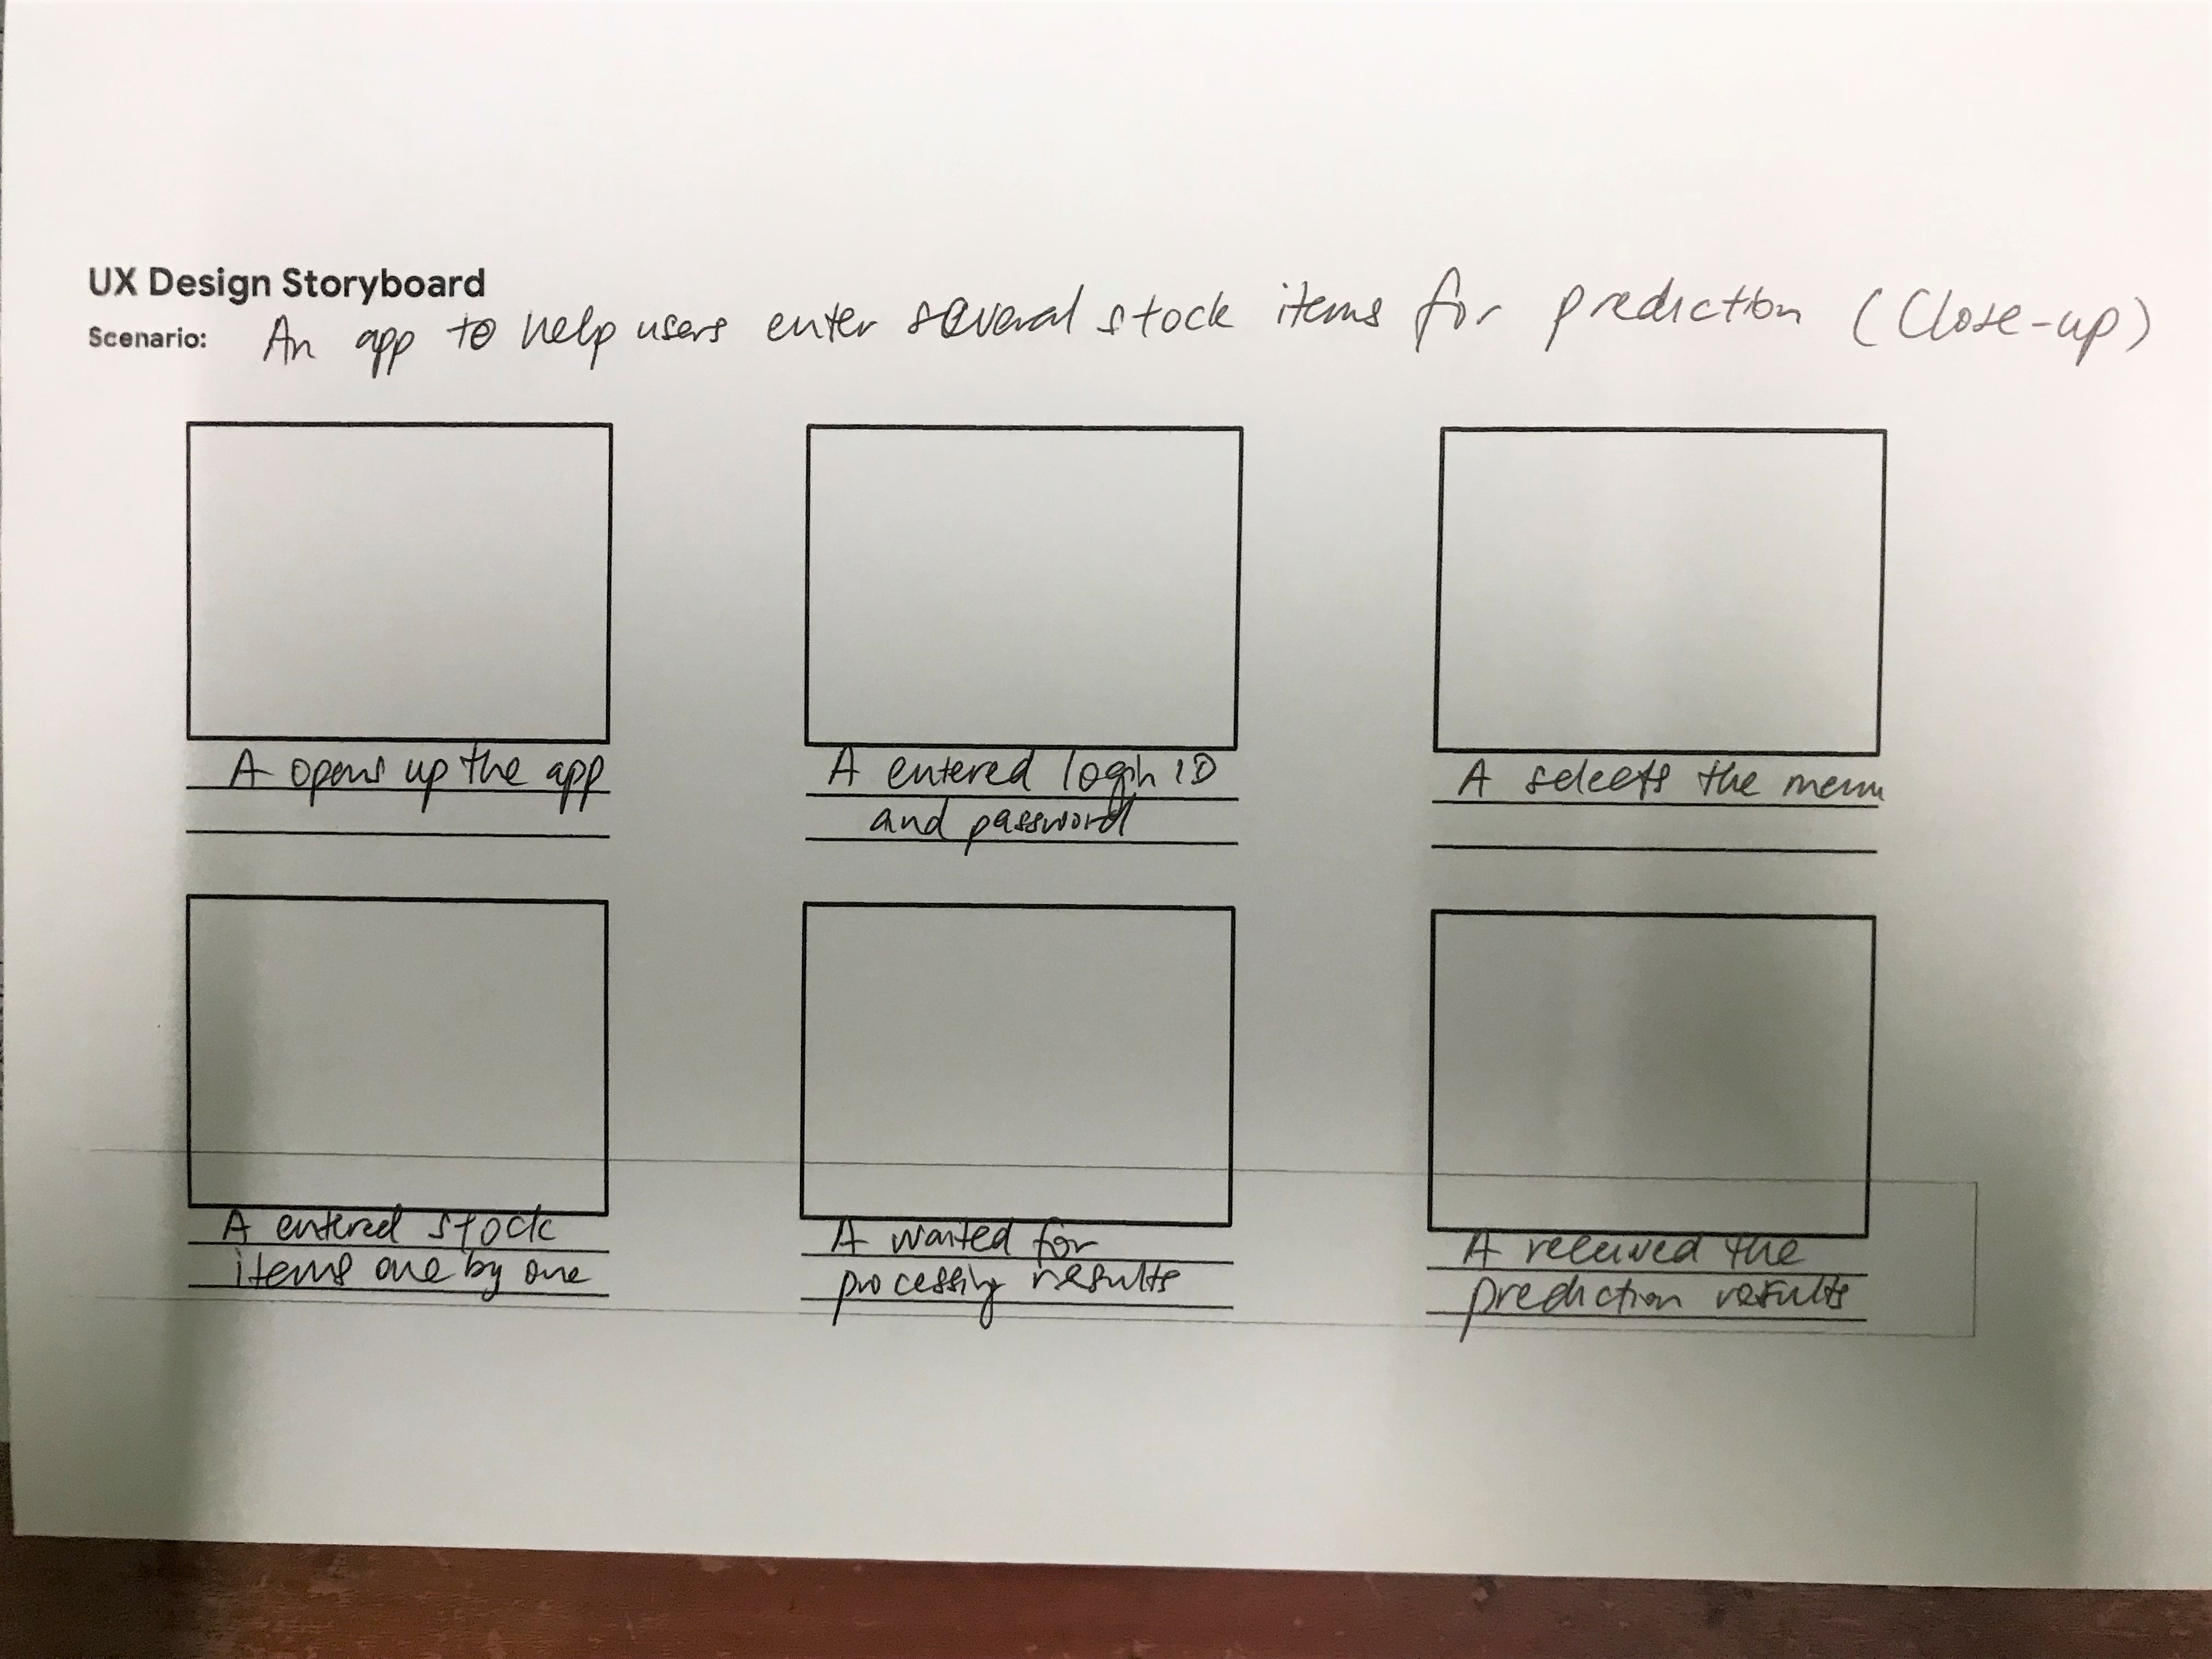 UX Design Storyboard
Scenario: An app to help users enter several stock items for prediction (Close-up)
A opens up the app
A entered login ID
and password
A selects the menu
A entered stock
items one by one
A waited for
processing results
A received the
prediction results